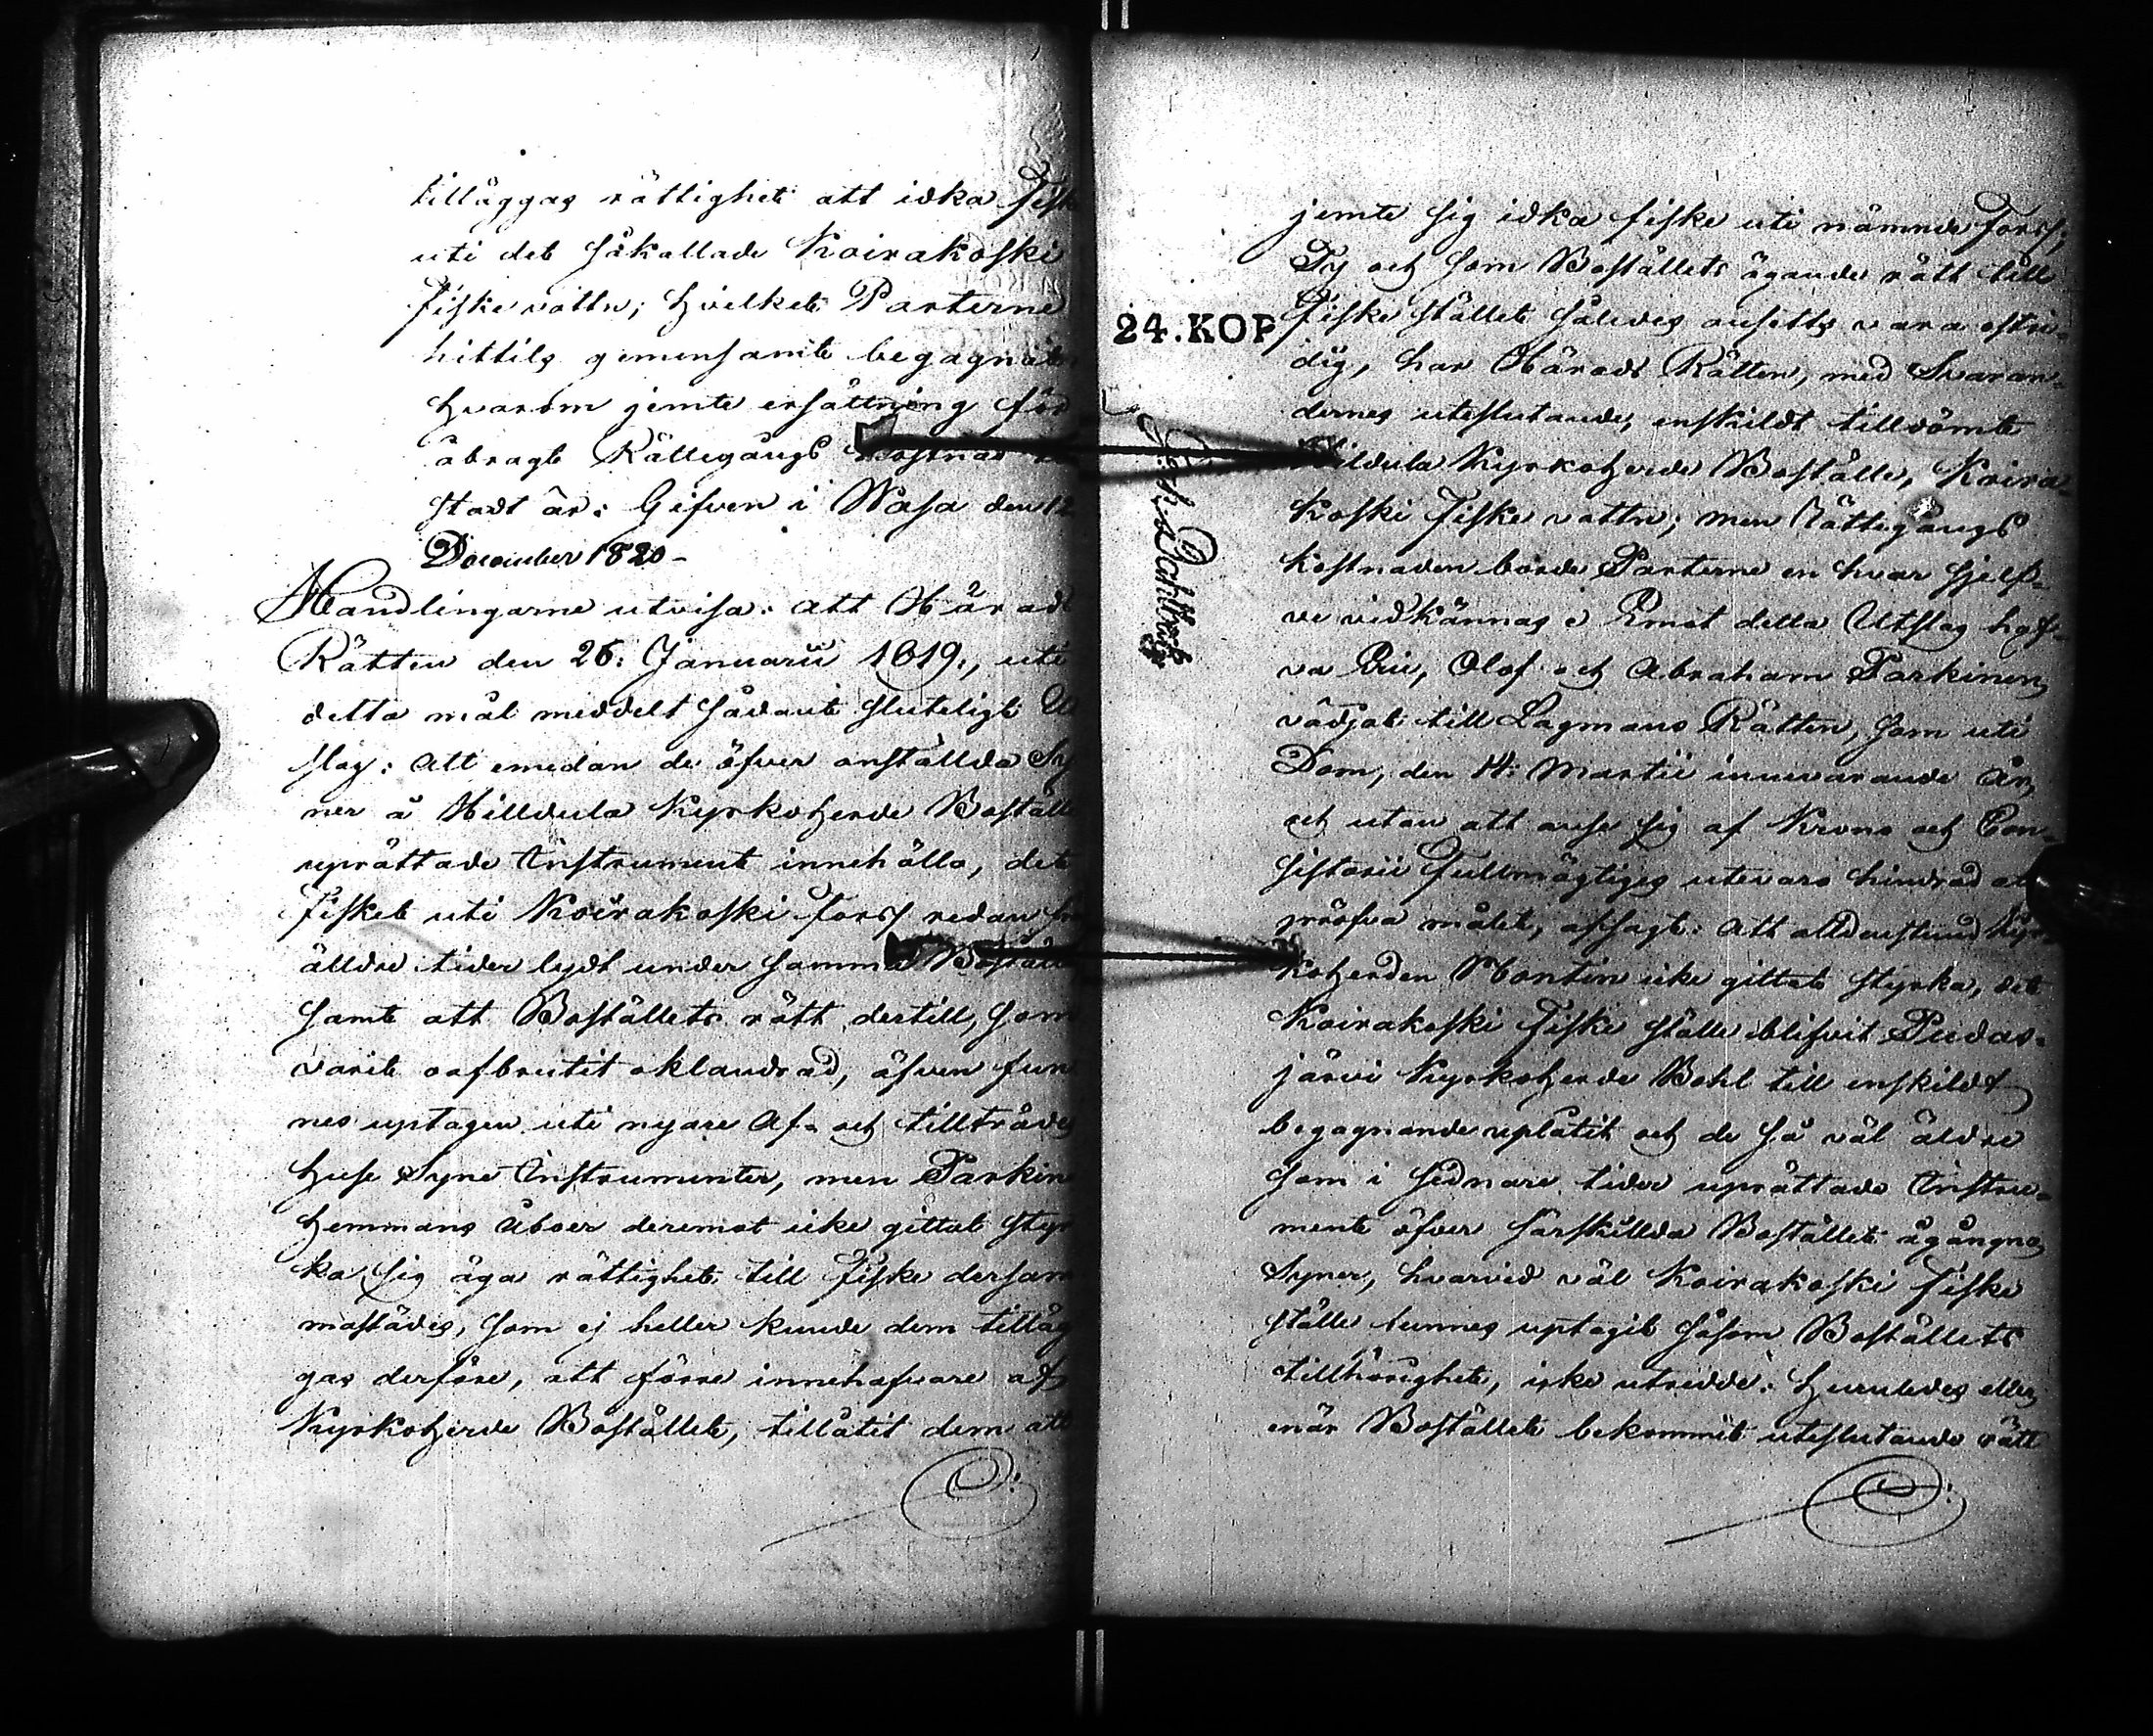 tilläggas rättighet att idka Fiske
uti det såkallade Koirakoski
fiske vattn; hvilket Parterne
hittils gemensamt begagnat
hvarom jemte ersättning för
åbragt Rättegångs Kostnad
stadt är. Gifven i Wasa den 12
December 1820 -
Handlingarne utvisa: att Härads
Rätten den 26: Januarii 1819:, uti
detta mål meddelt sådant sluteligt Ut
slag: att emedan de öfver anställda Sy
ner å Hilldula Kyrkoherde Boställe
uprättade Instrument innehålla, det
fisket uti Koirakoski Forss redan
älldre tider lydt under samma Boställe
samt att Boställets rätt dertill, som
varit oafbrutit oklandrad, äfven fun
nes uptagen uti nyare Af- och tillträdes
huse Syns Instrumenter, men Parkin
Hemmans Åboer deremot icke gittat styr
ka sig äga rättighet till Fiske dersam
mastädes, som ej heller kunde dem tilläg
gas derföre, att förre innehafvare af
Kyrkoherde Bostället, tillåtit dem att
24.KOP
jemte sig idka fiske uti nämnde Forss;
Ty och som Boställets ägande rätt till
Fiske stället således ansetts vara ostri-
dig, har Härads Rätten, med Svaran-
dernes uteslutande, enskildt tilldömt
Hildula Kyrkoherde Boställe, Koira-
koski Fiske vattn; men Rättegångs
kostnaden borde Parterne en hvar sjelf-
ve vidkännas. Emot detta Utslag haf-
va Olof och Abraham Parkinen,
vädjat till Lagmans Rätten, som uti
Dom, den 14: Martii innevarande År,
och utan att anse sig af Krono och Con-
sistorii Fullmägtiges utevaro hindrad at
pröfva målet, afsagt: Att alldenstund Kyr-
koherden Montin icke gittat styrka, det
Koirakoski Fiske ställe blifvit Pudas-
järvi Kyrkoherde Bohl till enskildt
begagnande uplåtit och de så väl äldre
som i sednare tider uprättade Instru-
ment öfver särskillda Bostället ågångna
Syner, hvarvid väl Koirakoski Fiske
ställe funnes uptagit såsom Boställets
tillhörighet, icke utredde: huruledes eller
enär Bostället bekommit uteslutande rätt